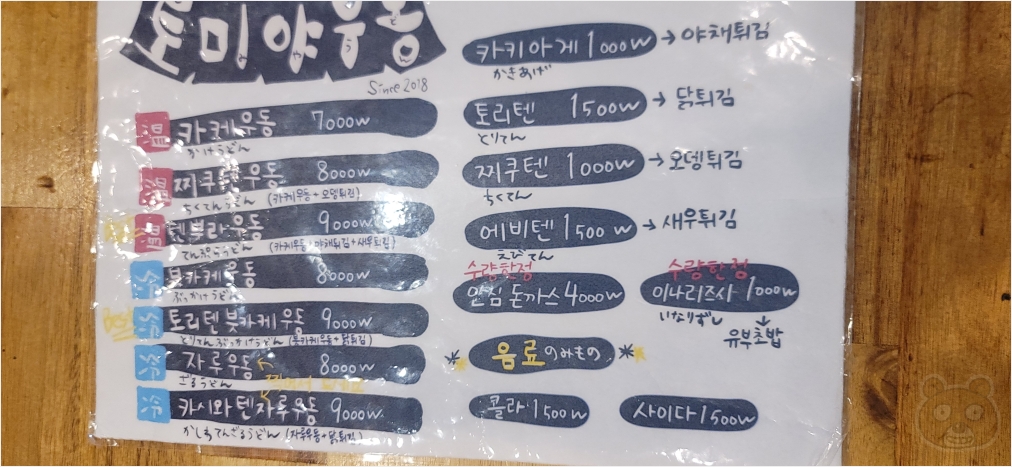 토미야우동
Since 2018
温 카케우동 7000w
かけうどん
温 찌쿠텐우동 8000w
ちくてんうどん (카케우동+오뎅튀김)
温 텐뿌라우동 9000w
てんぷらうどん (카케우동+야채튀김+새우튀김)
冷 붓카케우동 8000w
ぶっかけうどん
Best 冷 토리텐붓카케우동 9000w
とりてんぶっかけうどん (붓카케우동+닭튀김)
冷 자루우동 8000w
ざるうどん
冷 카시와텐자루우동 9000w
かしわてんざるうどん (자루우동+닭튀김)
카키아게 1000w → 야채튀김
かきあげ
토리텐 1500w → 닭튀김
とりてん
찌쿠텐 1000w → 오뎅튀김
ちくてん
에비텐 1500w → 새우튀김
えびてん
수량한정
안심돈까스 4000w
수량한정
이나리즈시 1000w
いなりずし
유부초밥
음료 のみもの
콜라 1500w
사이다 1500w